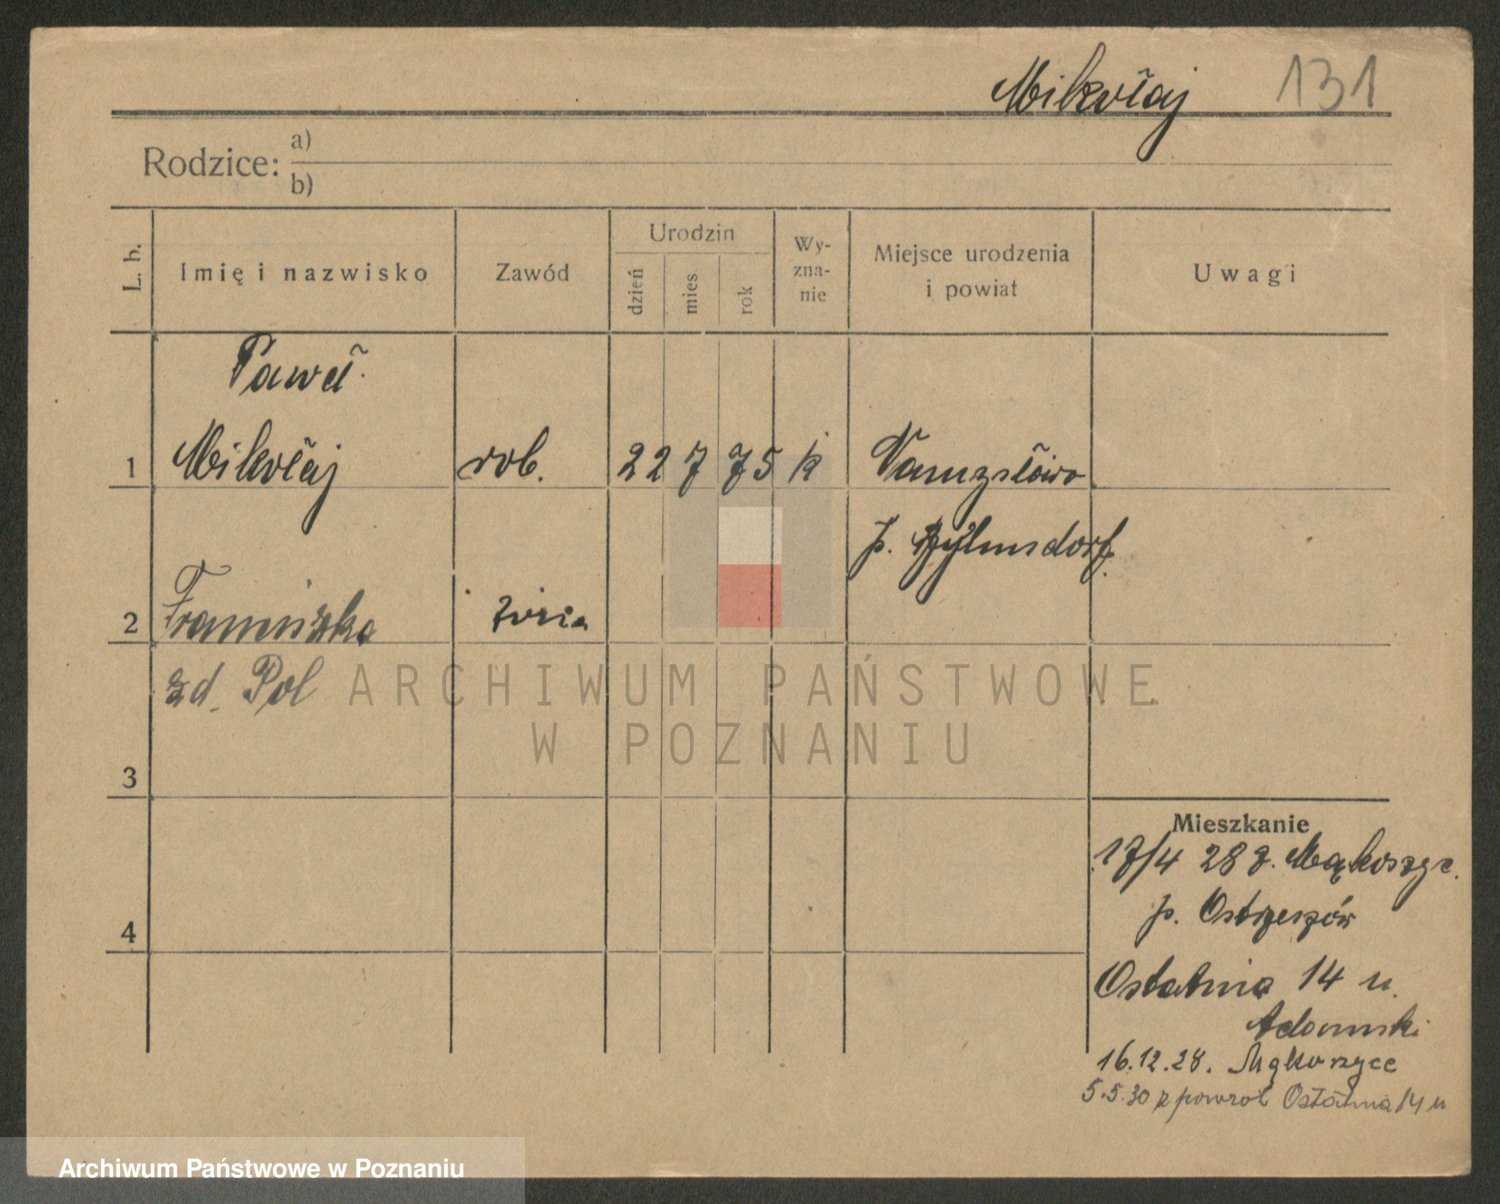 Mikołaj 131
Rodzice: a)
b)
L. b. Imię i nazwisko Zawód Urodzin dzień mies. rok Wy-zna-nie Miejsce urodzenia i powiat Uwagi
Paweł
1 Mikołaj rob. 22 7 75 k
p.
2 Franciszka
zd. Pol
ARCHIWUM PAŃSTWOWE
W POZNANIU
3
Mieszkanie
17/4 28 z. Mąkoszyc.
p. Ostrzeszów
4
Ostatnia 14 u.
Adamski
16.12.28. Mąkoszyce
5.5.30 z powrot Ostatnia 14 u
Archiwum Państwowe w Poznaniu